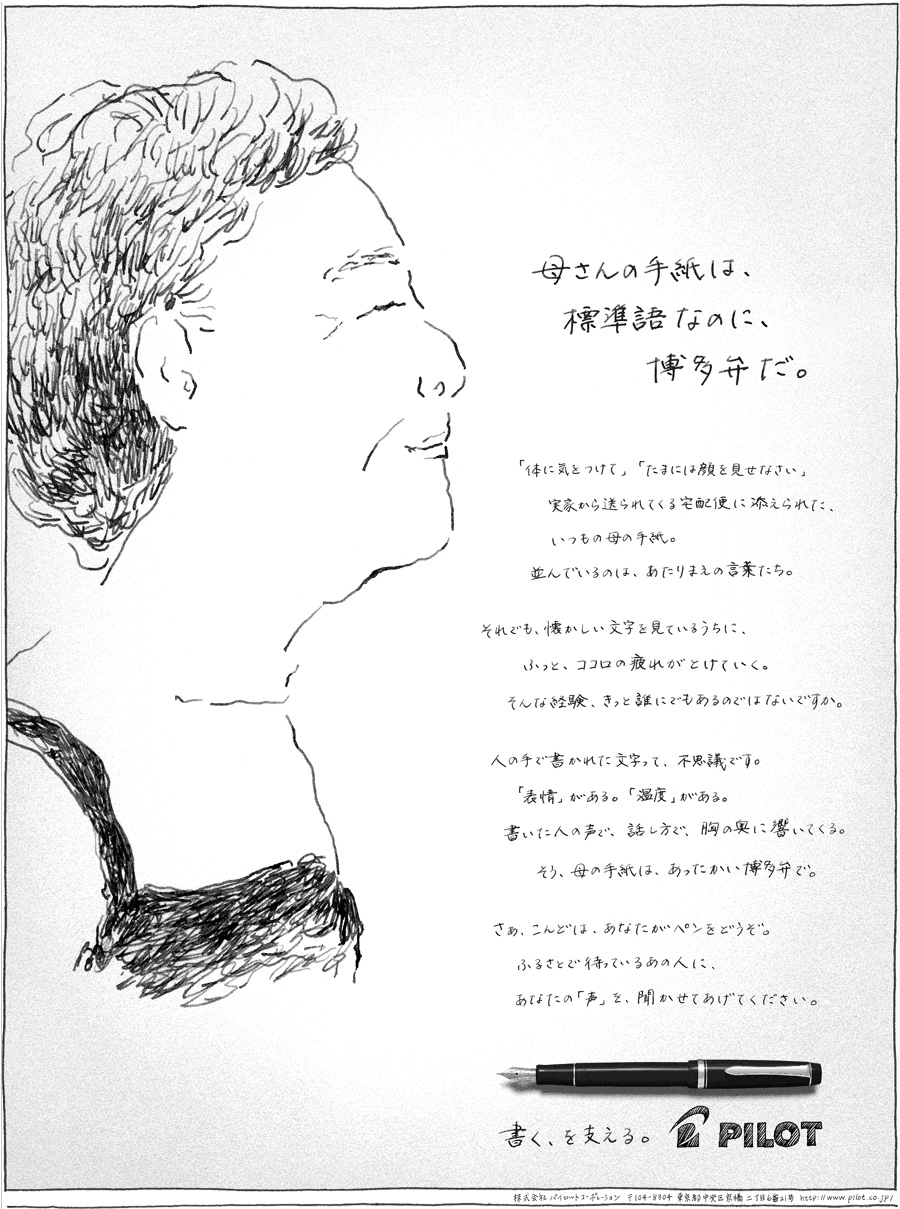 母さんの手紙は、
標準語なのに、
博多弁だ。
「体に気をつけて」「たまには顔を見せなさい」
実家から送られてくる宅配便に添えられた、
いつもの母の手紙。
並んでいるのは、あたりまえの言葉たち。
それでも、懐かしい文字を見ているうちに、
ふっと、ココロの疲れがとけていく。
そんな経験、きっと誰にでもあるのではないですか。
人の手で書かれた文字って、不思議です。
「表情」がある。「温度」がある。
書いた人の声で、話し方で、胸の奥に響いてくる。
そう、母の手紙は、あったかい博多弁で。
さあ、こんどは、あなたがペンをどうぞ。
ふるさとで待っているあの人に、
あなたの「声」を、聞かせてあげてください。
書く、を支える。 PILOT
株式会社パイロットコーポレーション 〒104-8304 東京都中央区京橋二丁目6番21号 http://www.pilot.co.jp/